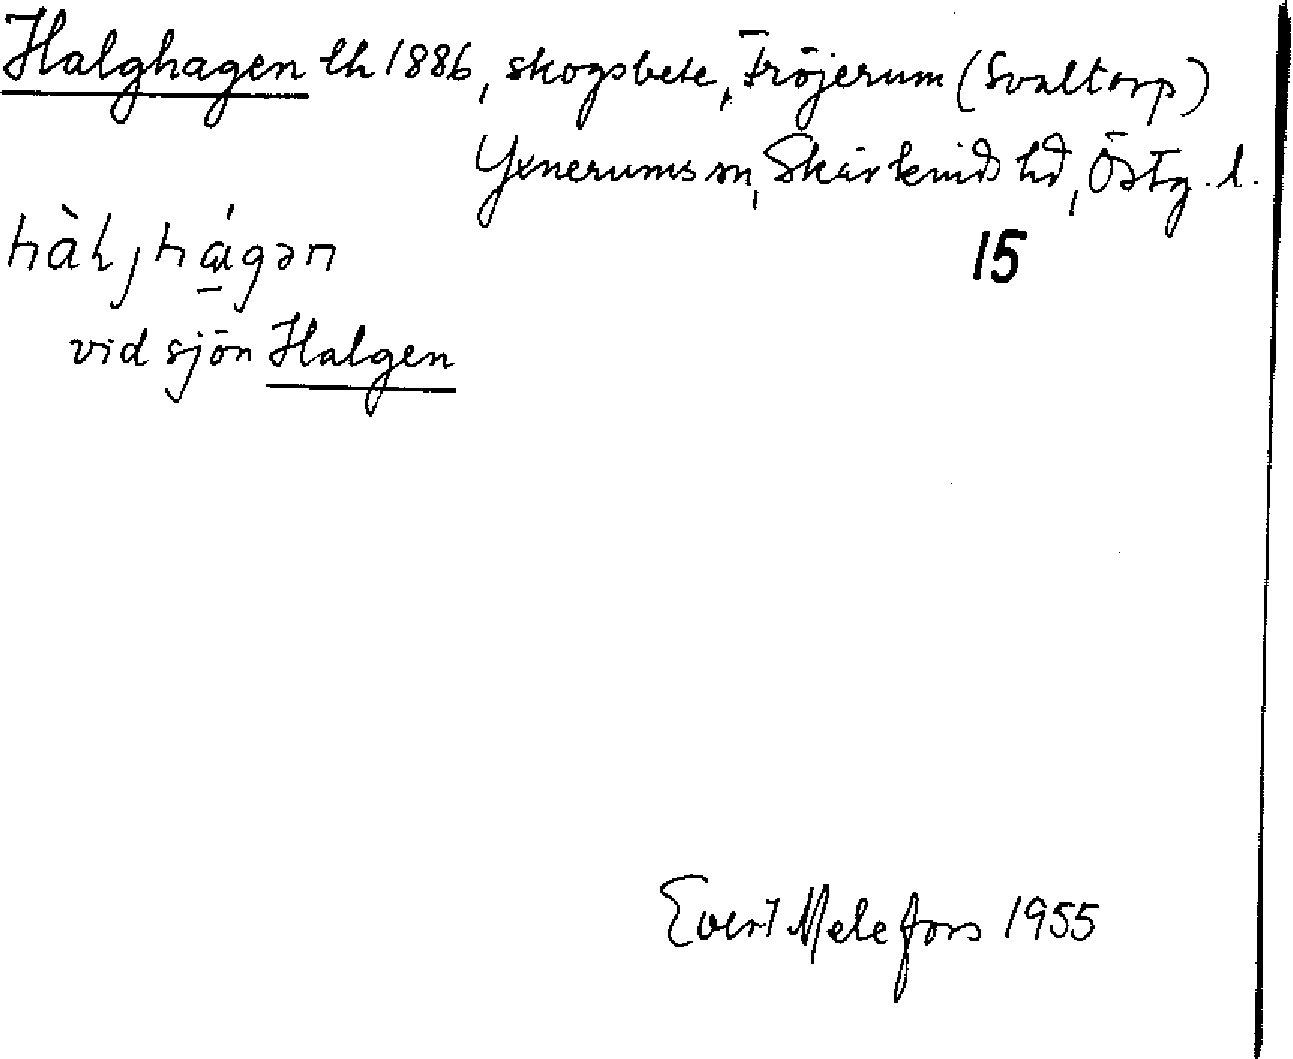 Halghagen lh 1886, skogsbete, Fröjerum (Svaltorp)
Yxnerums sn, Skärkinds hd, Östg. l.
hàlj hágən
15
vid sjön Halgen
Evert Melefors 1955